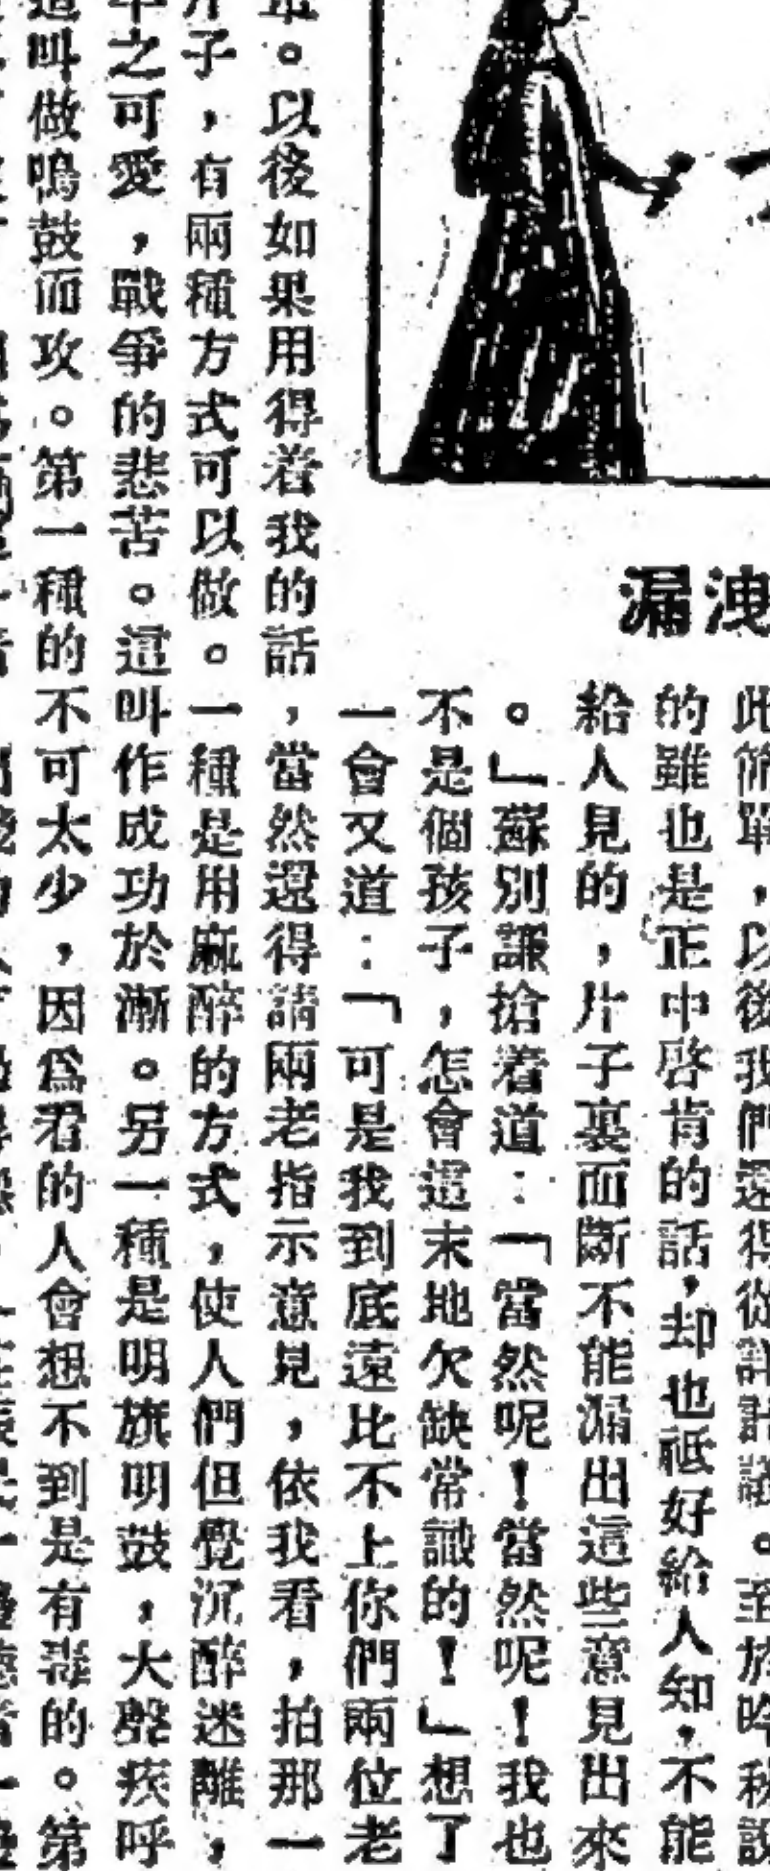 漏洩
此簡單，以後我們還得從詳計議。至於吟秋說
的雖也是正中啓肯的話，却也祗好給人知，不能
給人見的，片子裏面斷不能漏出這些意見出來
。」蘇別謙搶着道：「當然呢！當然呢！我也
不是個孩子，怎會這末地欠缺常識的！」想了
一會又道：「可是我到底遠比不上你們兩位老
。以後如果用得着我的話，當然還得請兩老指示意見，依我看，拍那一
片子，有兩種方式可以做。一種是用麻醉的方式，使人們但覺沉醉迷離，
之可愛，戰爭的悲苦。這叫作成功於漸。另一種是明旗明鼓，大聲疾呼
這叫做鳴鼓而攻。第一種的不可太少，因爲看的人會想不到是有毒的。第